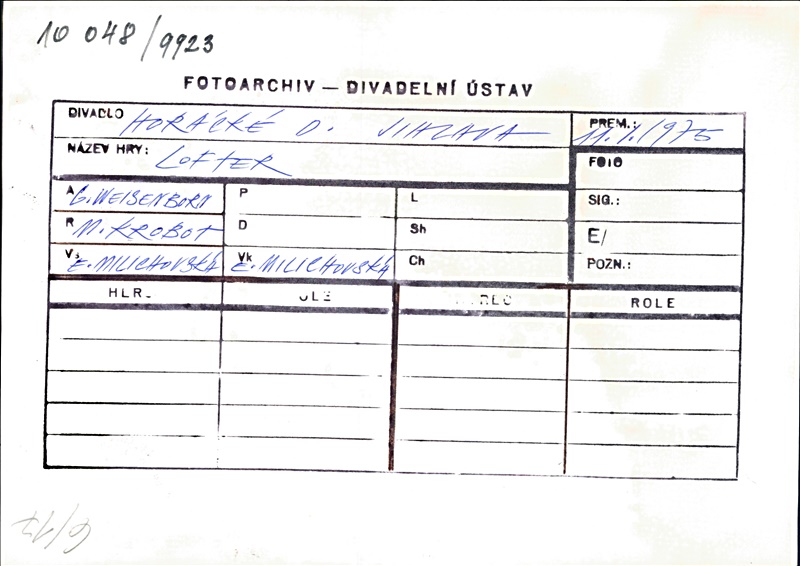 10 048/9923
FOTOARCHIV — DIVADELNÍ ÚSTAV
DIVADLO HORÁCKÉ D. JIHLAVA
PREM.: 11.1.1975
NÁZEV HRY: LOFTER
FOTO
A G. WEISENBORN P L SIG.:
R M. KROBOT D Sh E/
Vs E. MILICHOVSKÁ Vk E. MILICHOVSKÁ Ch POZN.:
HER ROLE HEREC ROLE
6/17